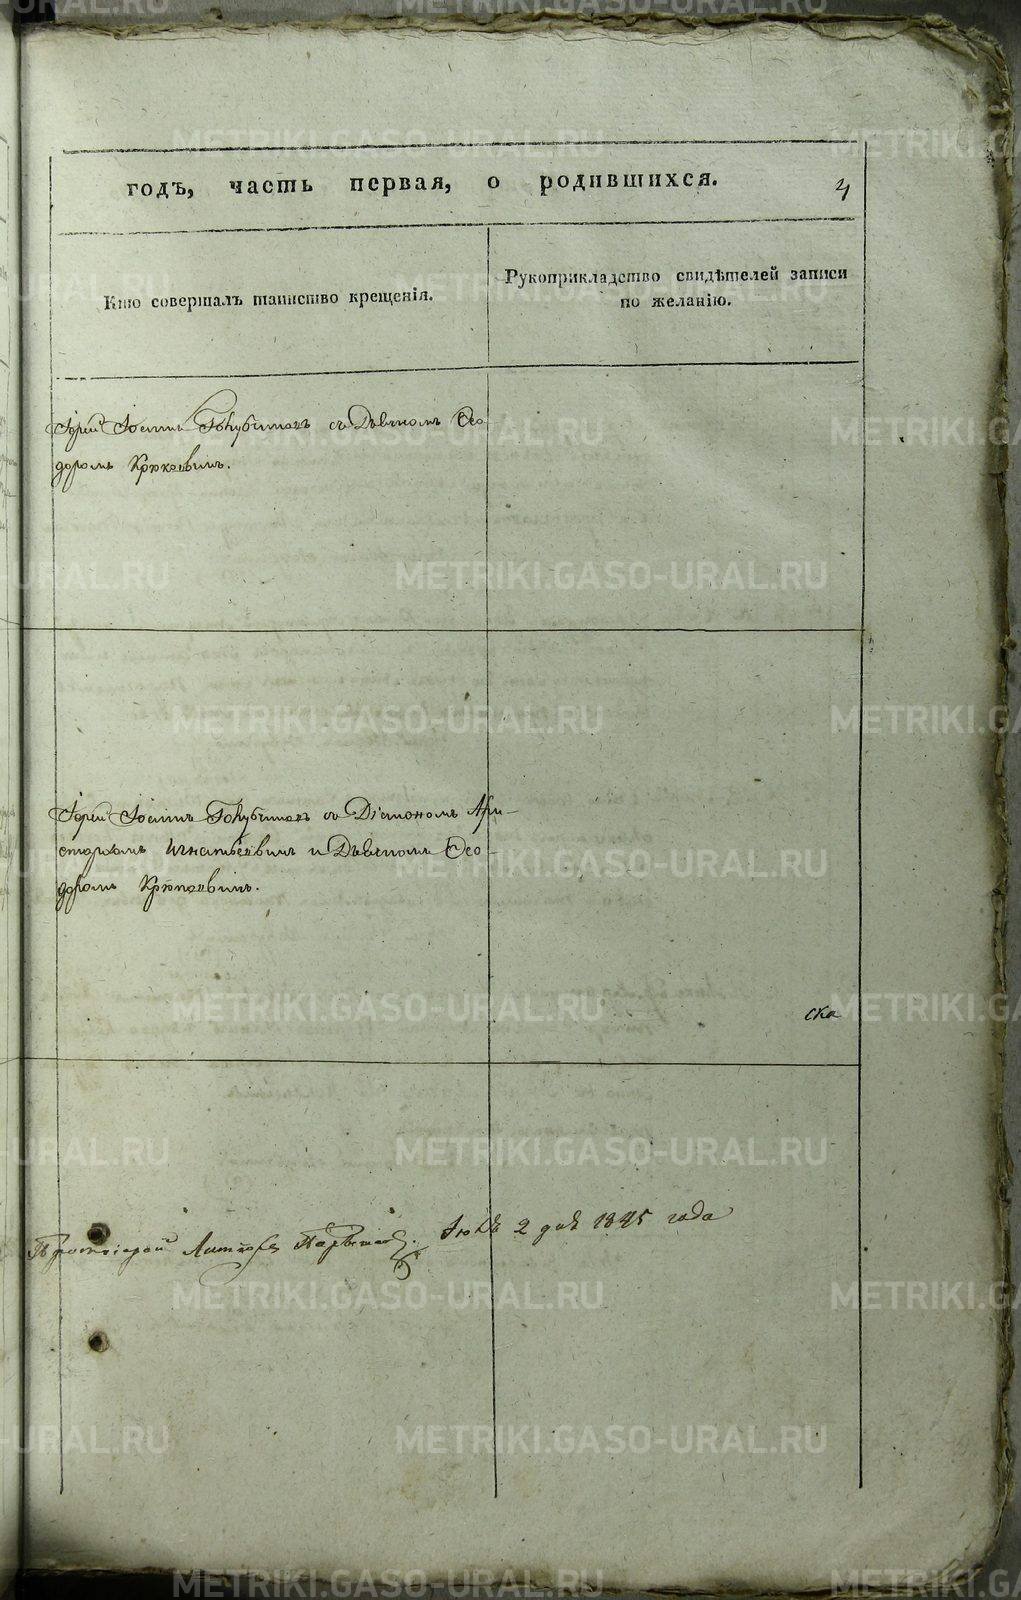 METRIKI.GASO-URAL.RU
годъ, часть первая, о родившихся.
Кто совершалъ таинство крещенія.
Рукоприкладство свидѣтелей записи
по желанію.
Іерей Іоаннъ Голубчиковъ съ Дьячкомъ Ѳео-
доромъ Крюковымъ.
Іерей Іоаннъ Голубчиковъ съ Діакономъ Ари-
стархомъ Игнатьевымъ и Дьячкомъ Ѳео-
доромъ Крюковымъ.
ска
Протоіерей 2 дня 1845 года